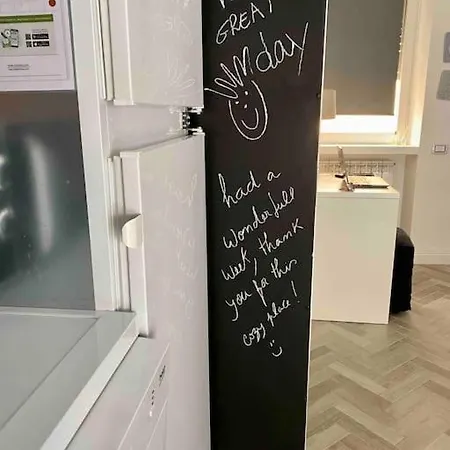 GREAT
day
had a
Wonderfull
week, thank
you for this
cozy place!